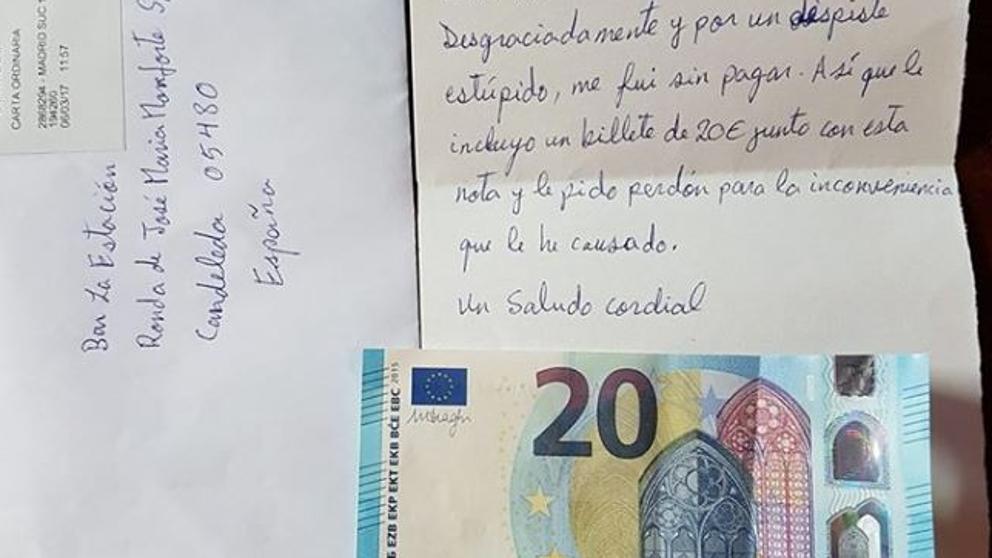 CARTA ORDINARIA
2868294 - MADRID SUC
194260
06/03/17 11:57
Bar La Estación
Ronda de José María Monforte
Candeleda 05480
España
Desgraciadamente y por un despiste
estúpido, me fui sin pagar. Así que le
incluyo un billete de 20€ junto con esta
nota y le pido perdón para la inconveniencia
que le he causado.
Un Saludo cordial
20
EZB EKP EKT EKB BCE EBC 2015